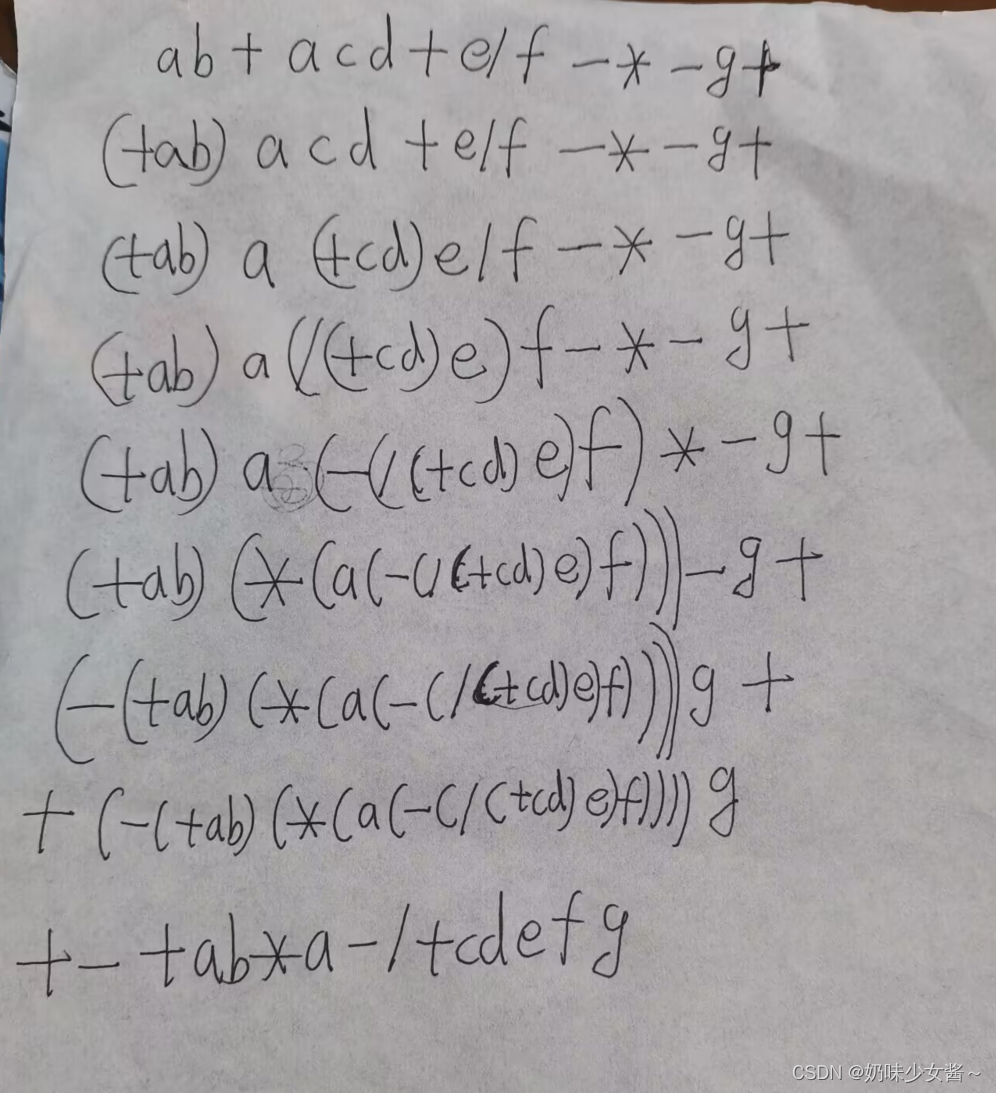 ab + a c d + e / f - * - g +
(+ab) a c d + e / f - * - g +
(+ab) a (+cd) e / f - * - g +
(+ab) a (/(+cd) e) f - * - g +
(+ab) a (-(/(+cd) e) f) * - g +
(+ab) (*(a(-(/(+cd) e) f))) - g +
(-(+ab) (*(a(-(/(+cd) e) f)))) g +
+ (-(+ab) (*(a(-(/(+cd) e) f)))) g
+ - + ab * a - / + cdefg
CSDN @奶味少女酱~